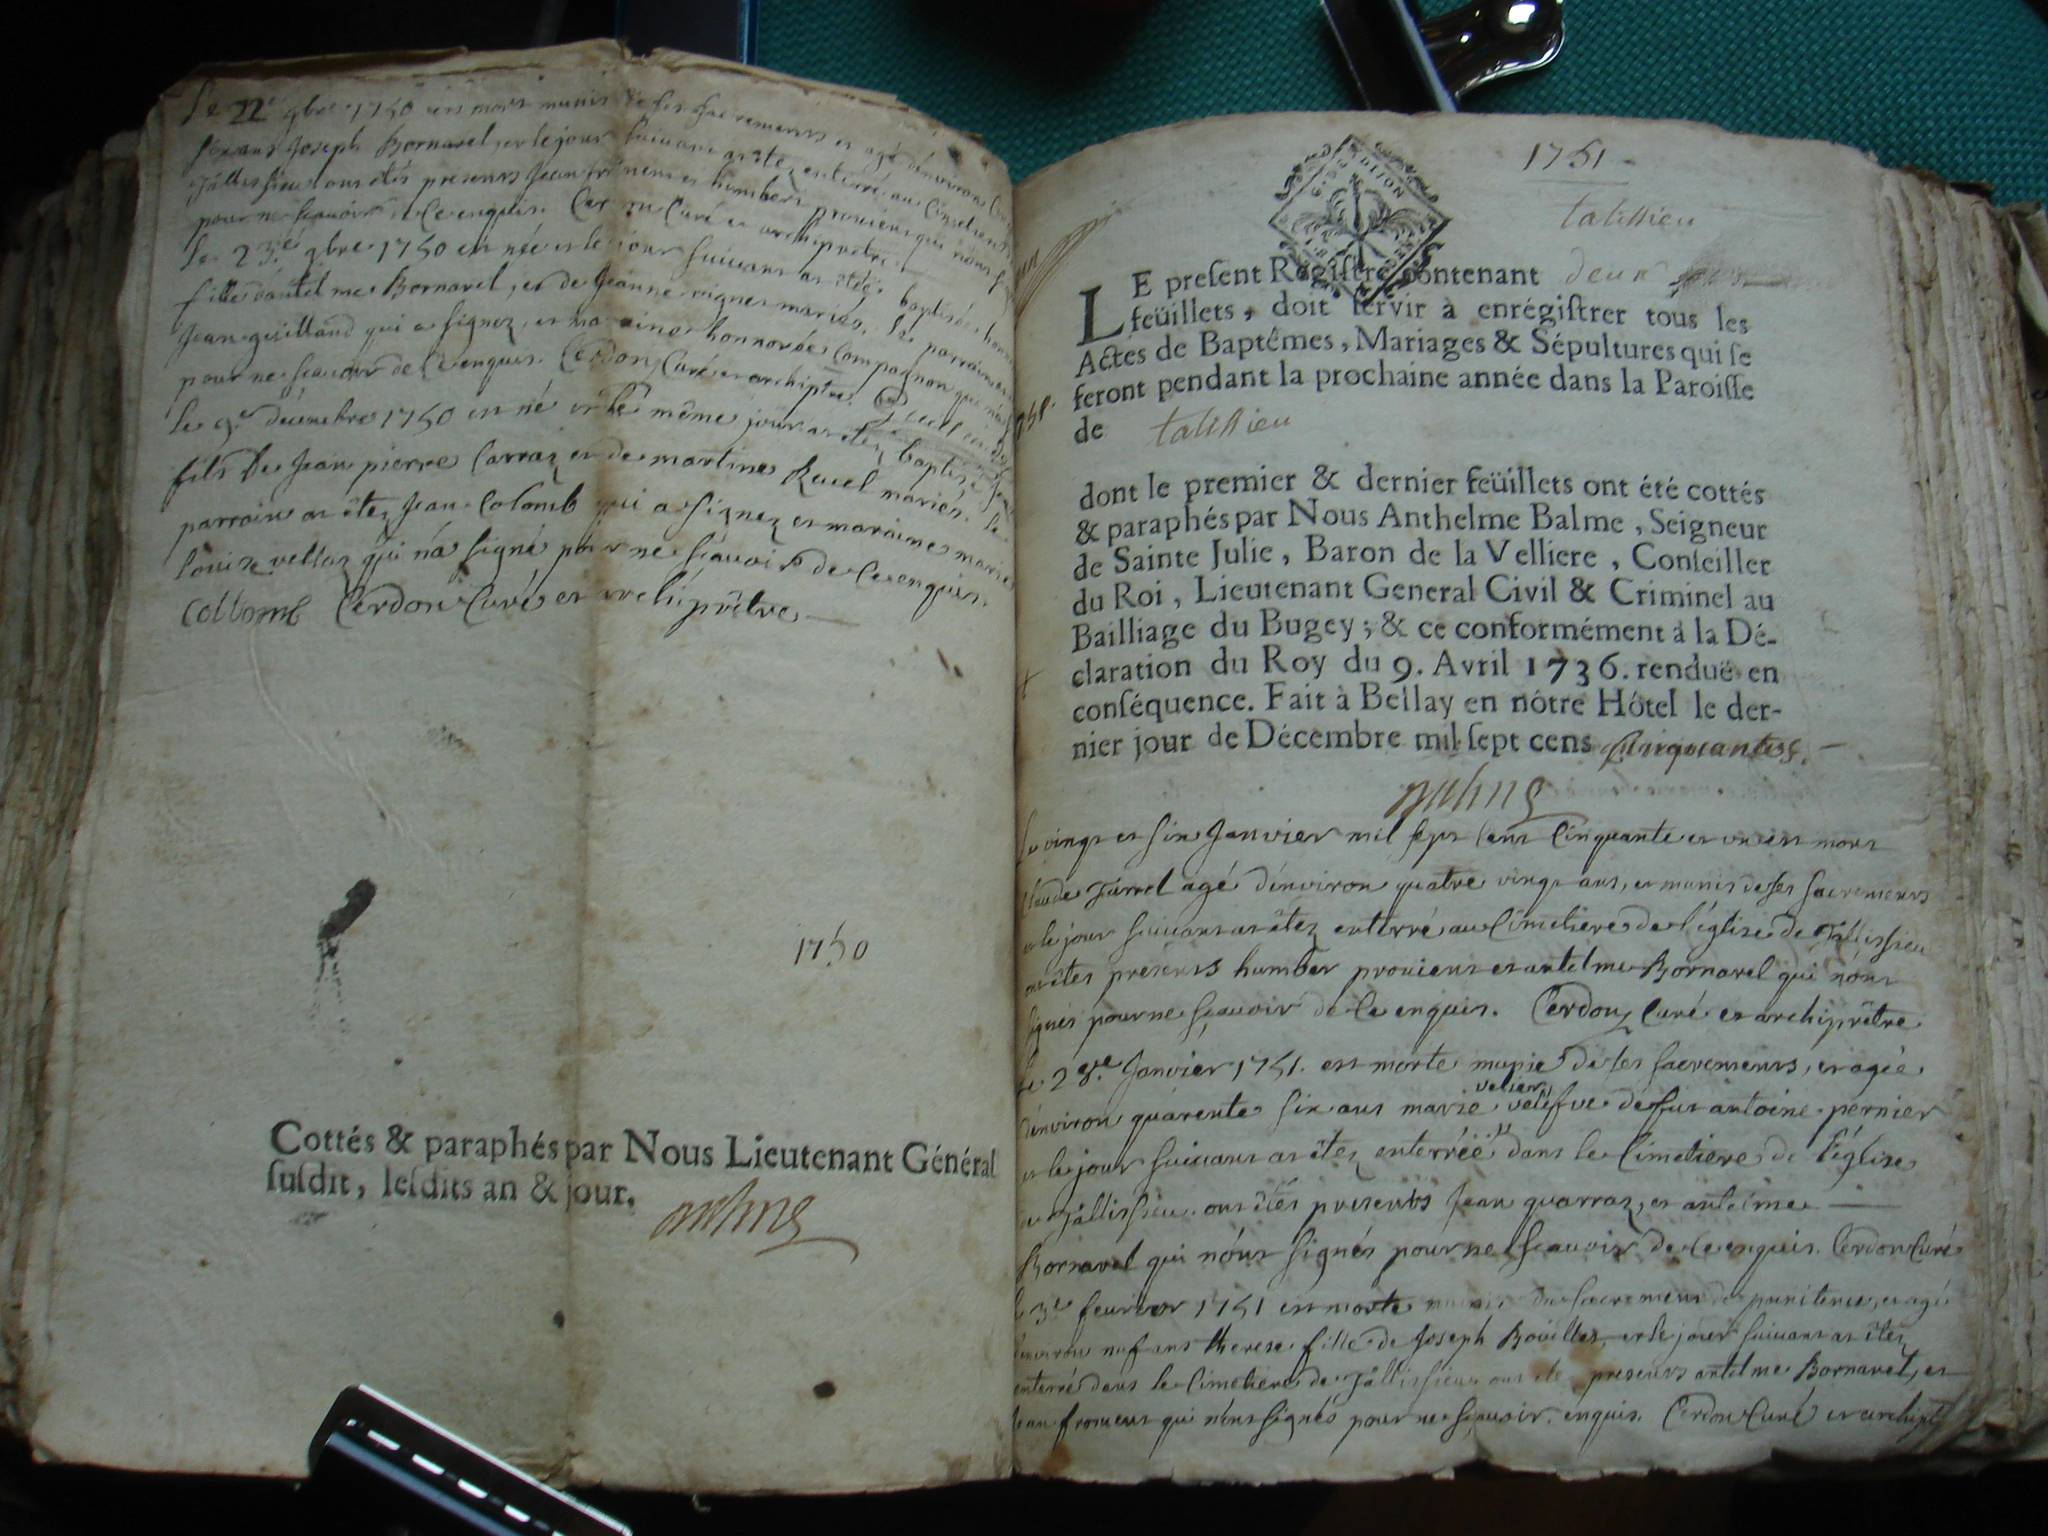 Le 22e 9bre 1750 est mort munis de ses sacremens et agé d'environ
six ans Joseph Bornarel, et le jour suivant at été enterré au Cimetiere
Tallissieu ont étés presents Jean fromens et humbert proviens qui n'ont
pour ne sçauoir de Ce enquis. Cerdon Curé et archiprêtre
Le 23e 9bre 1750 est née et le jour suivant at été baptisée
fille d'antelme Bornarel, et de Jeanne vignes mariés, le parrain
Jean guilland qui a signez, et maraine honnorée Compagnon qui
pour ne sçauoir de Ce enquis. Cerdon Curé et archiptre.
le 9e décembre 1750 est né et le même jour at étéz baptisé
fils de Jean pierre Carraz et de martine Ruel mariés. le
parrain at étez Jean Colomb qui a signez et maraine marie
louise vellas qui n'a signé pour ne sçauoir de Ce enquis.
Collomb Cerdon Curé et archiprêtre
1750
Cottés & paraphés par Nous Lieutenant Général
susdit, lesdits an & jour.
1751
talissieu
G. DE DIJON
LE present Registre contenant deux
feüillets, doit servir à enrégistrer tous les
Actes de Baptêmes, Mariages & Sépultures qui se
feront pendant la prochaine année dans la Paroisse
de talissieu
dont le premier & dernier feüillets ont été cottés
& paraphés par Nous Anthelme Balme, Seigneur
de Sainte Julie, Baron de la Velliere, Conseiller
du Roi, Lieutenant General Civil & Criminel au
Bailliage du Bugey; & ce conformément à la Dé-
claration du Roy du 9. Avril 1736. renduë en
conséquence. Fait à Bellay en nôtre Hôtel le der-
nier jour de Décembre mil sept cens Cinquante
le vingt et six Janvier mil sept Cent Cinquante et un est mort
Claude Turrel agé d'environ quatre vingt ans, et munis de ses sacremens
et le jour suivant at étez enterré au Cimetiere de l'église de Tallissieu
ont étes presents humber proviens et antelme Bornarel qui n'ont
signés pour ne sçauoir de Ce enquis. Cerdon Curé et archiprêtre
le 28e Janvier 1751. est morte munie de ses sacremens, et agée
velier
d'environ quarente six ans marie vefve de fut antoine pernier
et le jour suivant at étez enterréë dans le Cimetiere de l'église
de Tallissieu. ont étés presents Jean quarraz, et antelme
Bornarel qui n'ont signés pour ne sçauoir de Ce enquis. Cerdon Curé
le 3e feurier 1751 est morte munie du sacrement de penitence, et agé
d'environ neuf ans therese fille de Joseph Bouillet, et le jour suivant at étez
enterré dans le Cimetiere de Tallissieu ont étés presents antelme Bornarel, et
Jean fromens qui n'ont signés pour ne sçauoir enquis. Cerdon Curé et archipt